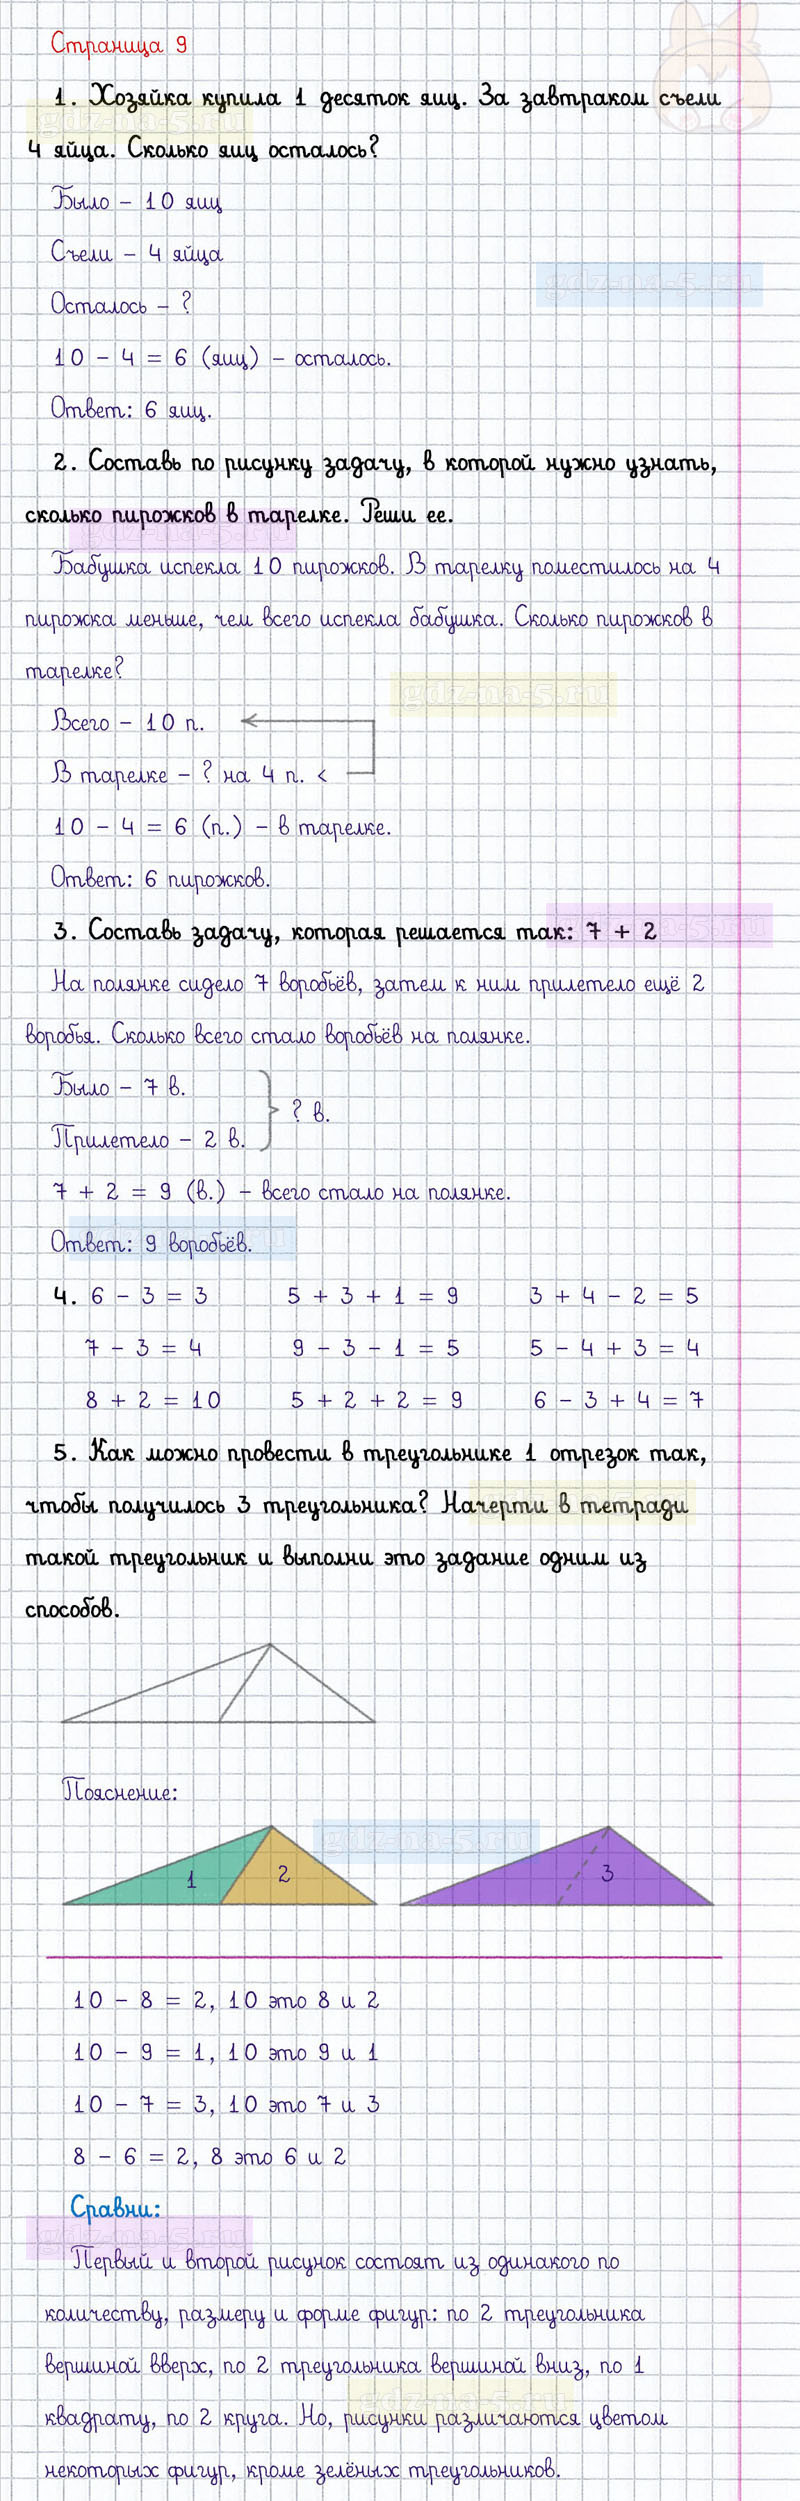 Страница 9
1. Хозяйка купила 1 десяток яиц. За завтраком съели
4 яйца. Сколько яиц осталось?
gdz-na-5.ru
Было – 10 яиц
Съели – 4 яйца
gdz-na-5.ru
Осталось – ?
10 – 4 = 6 (яиц) – осталось.
Ответ: 6 яиц.
2. Составь по рисунку задачу, в которой нужно узнать,
сколько пирожков в тарелке. Реши ее.
gdz-na-5.ru
Бабушка испекла 10 пирожков. В тарелку поместилось на 4
пирожка меньше, чем всего испекла бабушка. Сколько пирожков в
тарелке?
gdz-na-5.ru
Всего – 10 п.
В тарелке – ? на 4 п. <
10 – 4 = 6 (п.) – в тарелке.
Ответ: 6 пирожков.
3. Составь задачу, которая решается так: 7 + 2
gdz-na-5.ru
На полянке сидело 7 воробьёв, затем к ним прилетело ещё 2
воробья. Сколько всего стало воробьёв на полянке.
Было – 7 в.
? в.
Прилетело – 2 в.
7 + 2 = 9 (в.) – всего стало на полянке.
Ответ: 9 воробьёв.
gdz-na-5.ru
4. 6 – 3 = 3 5 + 3 + 1 = 9 3 + 4 – 2 = 5
7 – 3 = 4 9 – 3 – 1 = 5 5 – 4 + 3 = 4
8 + 2 = 10 5 + 2 + 2 = 9 6 – 3 + 4 = 7
5. Как можно провести в треугольнике 1 отрезок так,
чтобы получилось 3 треугольника? Начерти в тетради
gdz-na-5.ru
такой треугольник и выполни это задание одним из
способов.
Пояснение:
gdz-na-5.ru
1 2 3
10 – 8 = 2, 10 это 8 и 2
10 – 9 = 1, 10 это 9 и 1
10 – 7 = 3, 10 это 7 и 3
8 – 6 = 2, 8 это 6 и 2
Сравни:
gdz-na-5.ru
Первый и второй рисунок состоят из одинакого по
количеству, размеру и форме фигур: по 2 треугольника
вершиной вверх, по 2 треугольника вершиной вниз, по 1
gdz-na-5.ru
квадрату, по 2 круга. Но, рисунки различаются цветом
некоторых фигур, кроме зелёных треугольников.